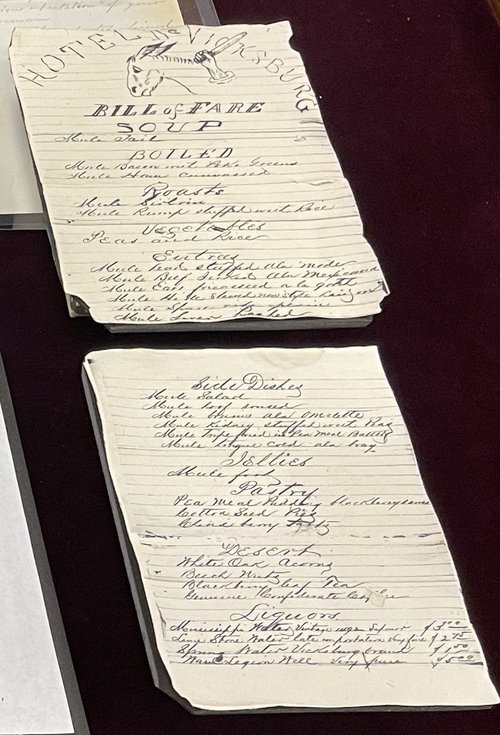 HOTEL de VICKSBURG
BILL of FARE
SOUP
Mule Tail
BOILED
Mule Bacon with Poke Greens
Mule Ham canvassed
Roasts
Mule Sirloin
Mule Rump stuffed with Rice
Vegetables
Peas and Rice
Entras
Mule head stuffed ala mode
Mule Beef Jerked ala Mexicana
Mule Ears fricasseed a la gotch
Mule new style
Mule
Mule Liver
Side Dishes
Mule Salad
Mule hoof soused
Mule ala omelette
Mule Kidney stuffed with Peas
Mule Tripe fried in Pea Meal Batter
Mule Tongue cold ala bray
Jellies
Mule foot
Pastry
Pea Meal Pudding blackberry sauce
Cotton Seed Pies
China berry
Desert
White Oak Acorns
Beech Nuts
Blackberry Leaf Tea
Genuine Confederate Coffee
Liquors
Mississippi Water Vintage $3.00
Lime Stone Water late importation Very fine $2.75
Spring Water Vicksburg brand $1.50
Well Very